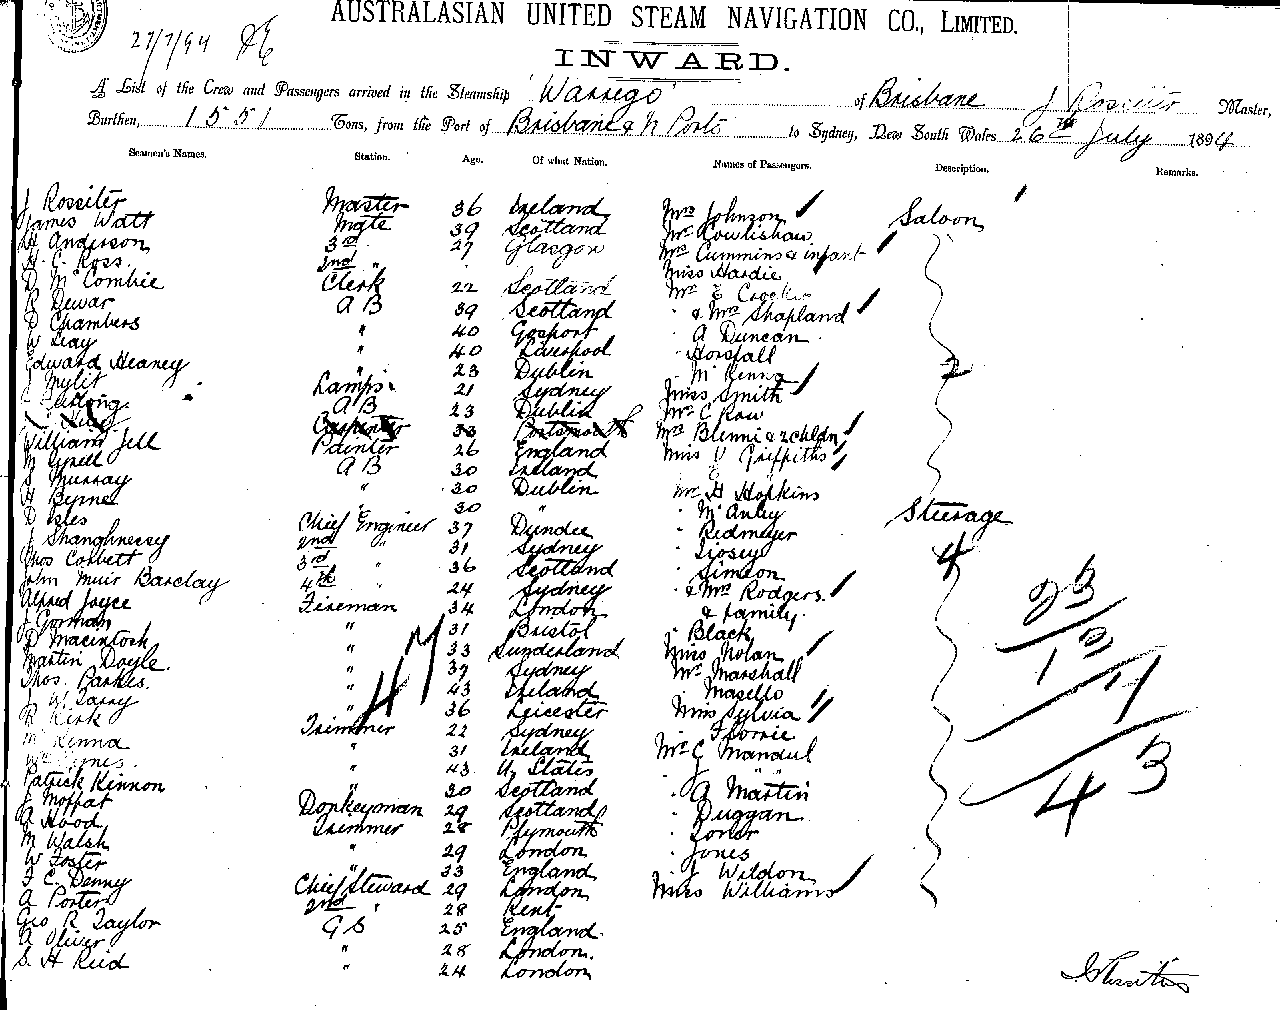 AUSTRALASIAN UNITED STEAM NAVIGATION CO., LIMITED.
27/7/94
INWARD.
A List of the Crew and Passengers arrived in the Steamship 'Warrego' of Brisbane J Rossiter Master,
Burthen, 1551 Tons, from the Port of Brisbane & N Ports to Sydney, New South Wales 26th July 1894
Seamen's Names. Station. Age. Of what Nation. Names of Passengers. Description. Remarks.
J Rossiter Master 36 Ireland Mrs Johnson Saloon
James Watt Mate 39 Scotland Mr Cowlishaw
Anderson 3rd 27 Glasgow Mrs Cummins & infant
H. C. Ross. 2nd " Miss Hardie
D McCombie Clerk 22 Scotland Mr E Crookes
R Dewar A B 39 Scotland " & Mrs Shapland
D Chambers " 40 Gosport " A Duncan
W Leay " 40 Liverpool " Horsfall
Edward Heaney " 23 Dublin " McKenna
Mylit Lamps 21 Sydney Miss Smith
A B 23 Dublin Mr C Row
Carpenter 33 Portsmouth Mrs Blenni & 2 chldn
William Jell Painter 26 England Miss V Griffiths
M Tyrell A B 30 Ireland
S Murray " 30 Dublin Mr H Hopkins
H Byrne " 30 " " McAuley
D Isles Chief Engineer 37 Dundee " Redmeyer Steerage
J Shanghnessy 2nd " 31 Sydney
Thos Corbett 3rd " 36 Scotland " Simeon 4
John Muir Barclay 4th " 24 Sydney " & Mrs Rodgers
Alfred Joyce Fireman 34 London & Family
J Gorman " 31 Bristol " Black
D Macintosh " 33 Sunderland Miss Nolan
Martin Doyle. " 39 Sydney Mr Marshall
Thos. Parkes. " 43 Ireland " Masello
W. Garry " 36 Leicester Miss Sylvia
R Kirk Trimmer 22 Sydney " Florrie
McKenna " 31 Ireland Mr G Mandul
" 43 U. States " J " "
Patrick Kinnon " 30 Scotland " A Martin
J Moffat Donkeyman 29 Scotland " Duggan
A Hood Trimmer 28 Plymouth " Toner
M Walsh " 29 London " Jones
W Foster " 33 England " J Wildon
F C. Denny Chief Steward 29 London Miss Williams
A Porter 2nd " 28 Kent
Geo R Taylor G S 25 England.
A Oliver " 28 London.
S. H Reid " 24 London
47
23
13
7
43
J Rossiter